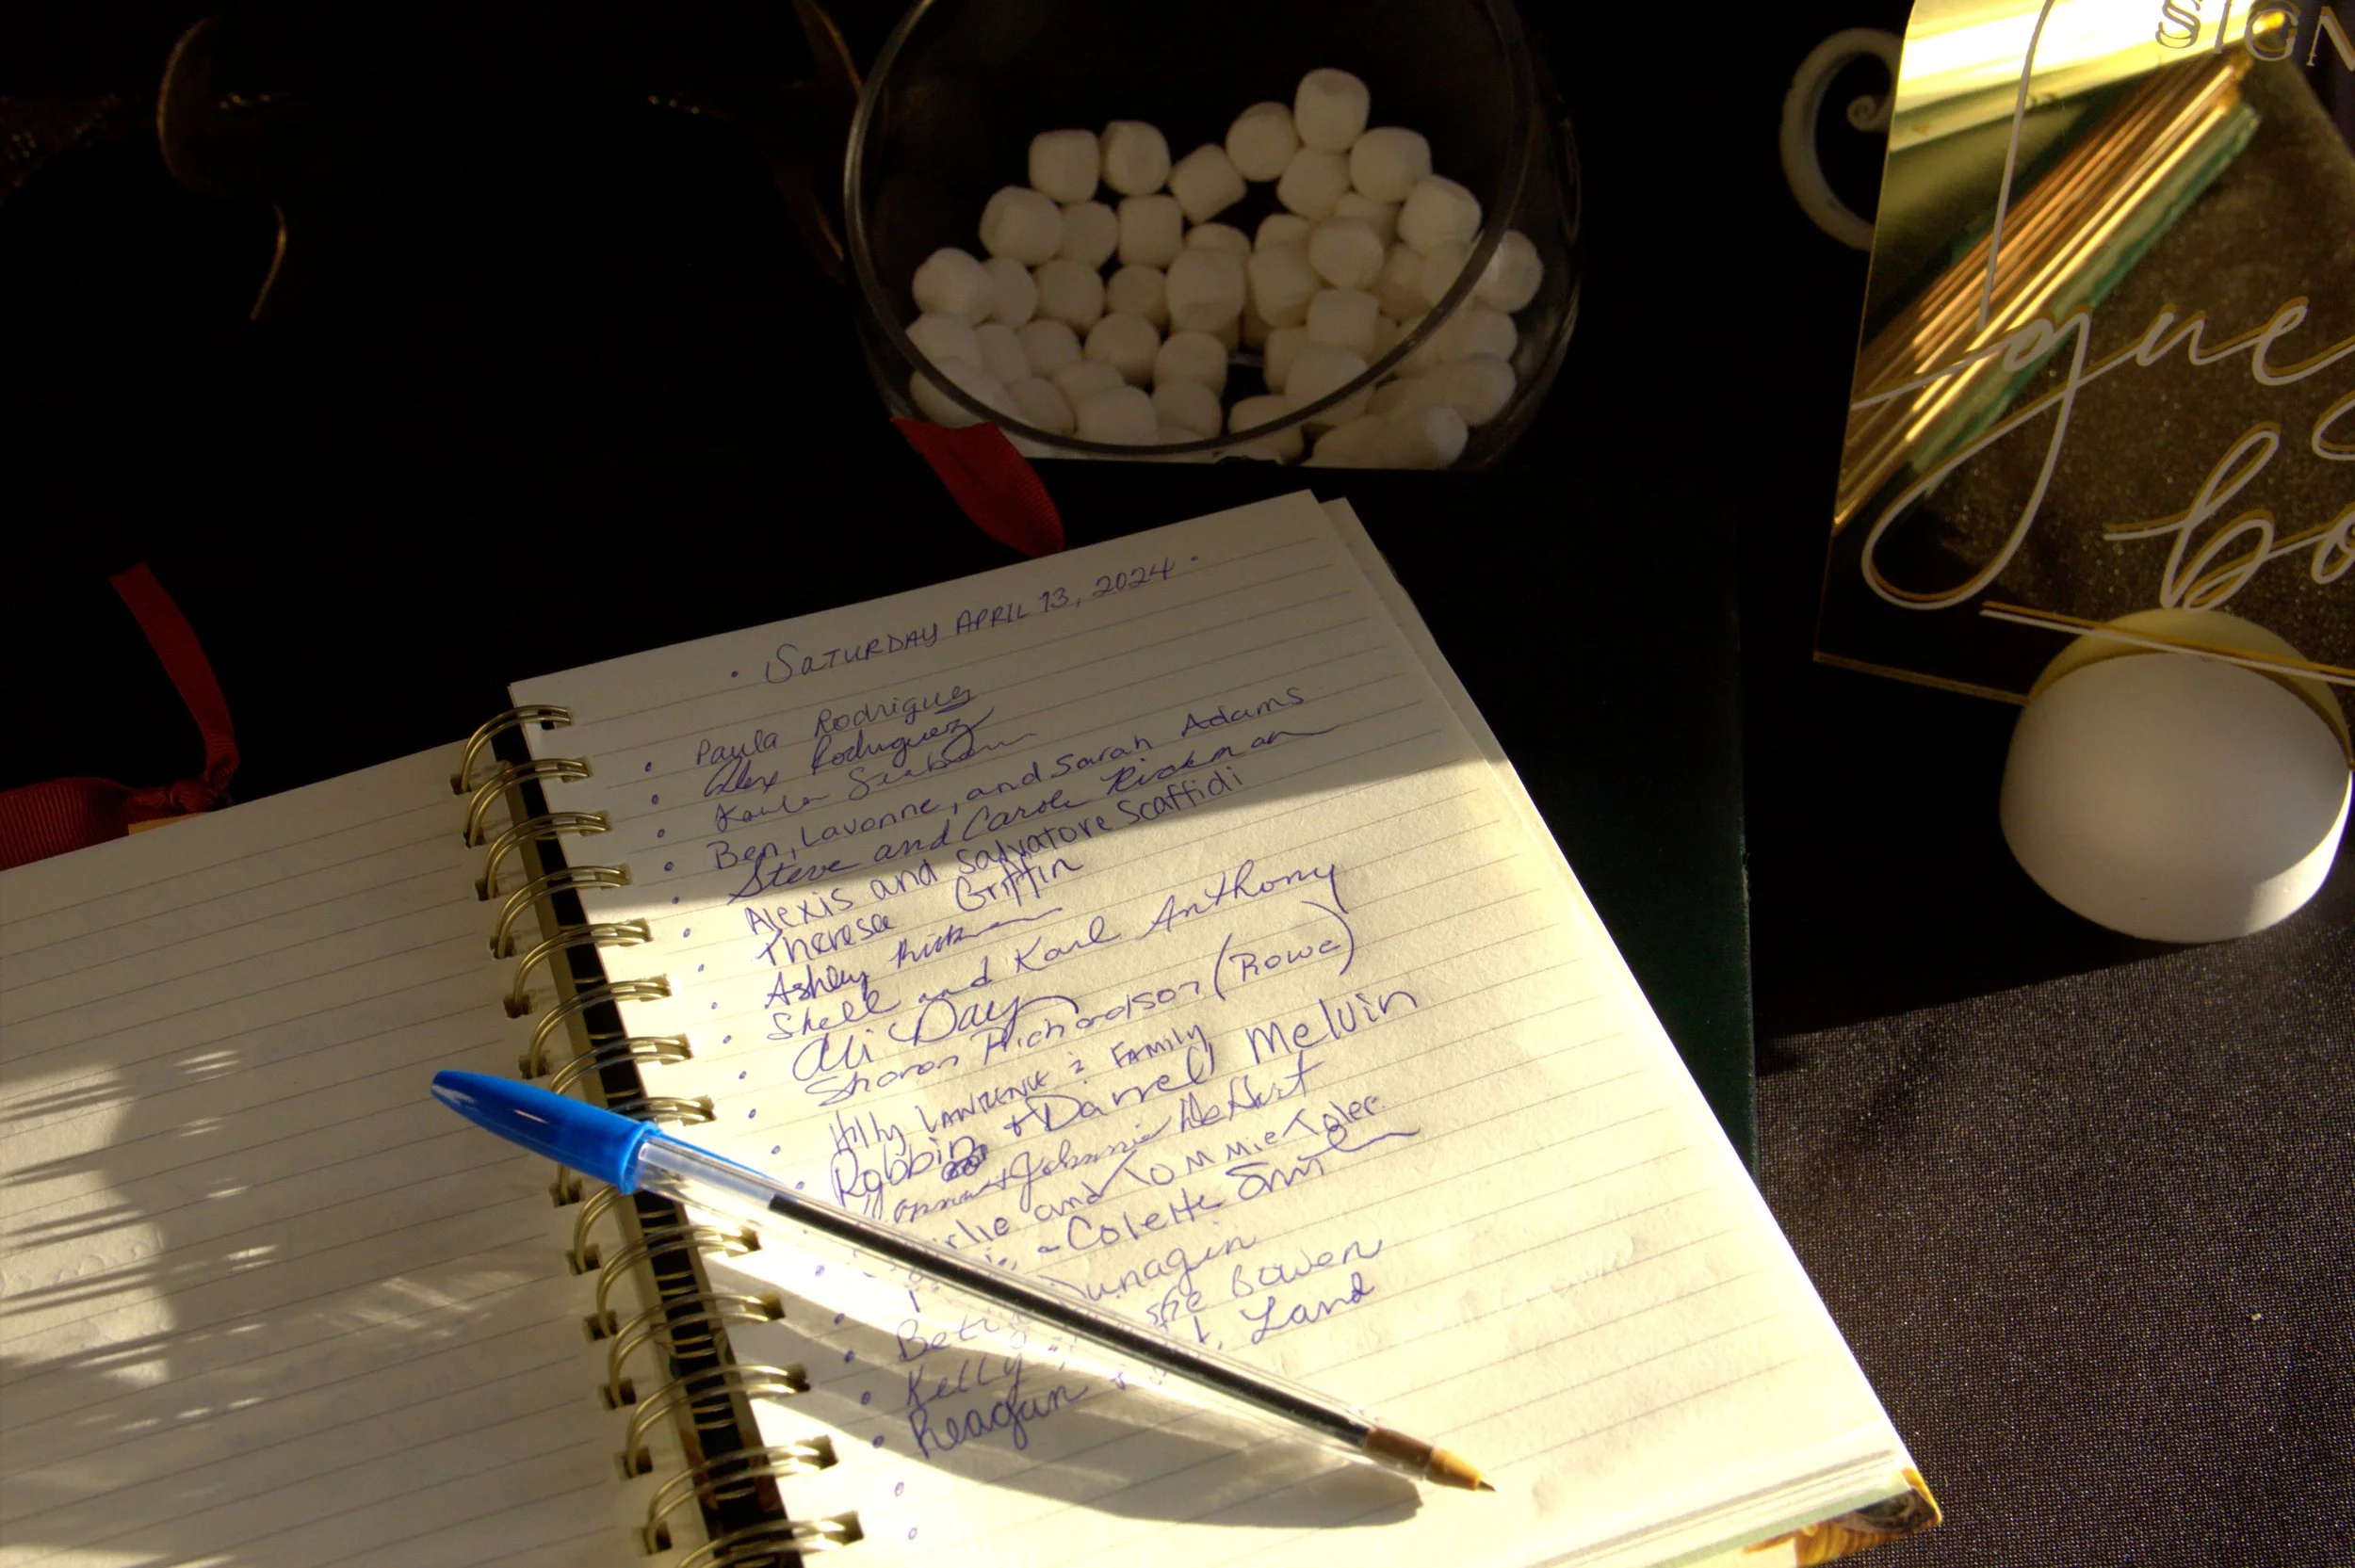 SIGN
gues
bo
· SATURDAY APRIL 13, 2024 ·
· Paula Rodriguez
· Alex Rodriguez
· Kayla
· Ben, Lavonne, and Sarah Adams
· Steve and Carole Rickman
· Alexis and Salvatore Scaffidi
· Theresa Griffin
· Ashley Rickman
· Shell and Karl Anthony
· Ali Day
· Sharon Richardson (Rowe)
· Hilly LAWRENCE & FAMILY
· Robbin + Darrell Melvin
+ Johnnie DeHart
and Tommie Toler
- Colette Smith
· Betty Dunagin
· Kelly Bowen
· Reagan + Land